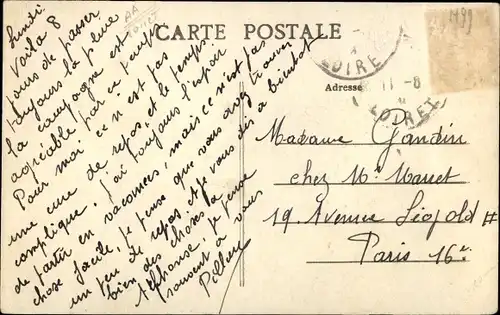 CARTE POSTALE
Adresse
LOIRE
11-8
LOIRET
Lundi
Voila 8
jours de passer
toujours la pluie
la campagne est
agréable par ce temps
Pour moi ce n'est pas
une cure de repos, et le temps
complique, j'ai toujours l'espoir
de partir en vacances, mais ce n'est pas
chose facile, je pense que vous avez trouver
un peu de repos et je vous dis à bientot
bien des choses à
Alphonse, je pense
souvent à vous
Madame Gandin
chez Mr Marret
19, Avenue Léopold II
Paris 16e